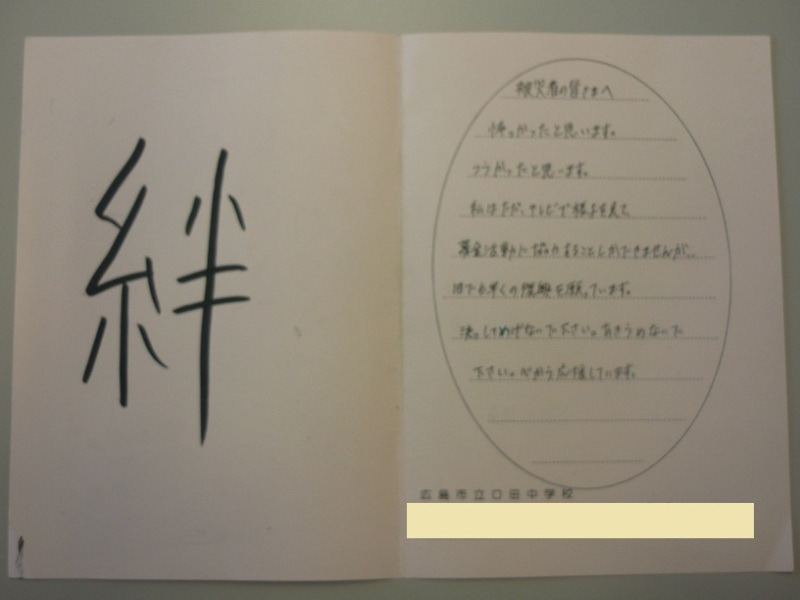 絆
被災者の皆さまへ
怖かったと思います。
つらかったと思います。
私はただ、テレビで様子を見て、
募金活動に協力することしかできませんが、
1日でも早くの復興を願っています。
決してめげないで下さい。あきらめないで
下さい。心から応援しています。
広島市立口田中学校